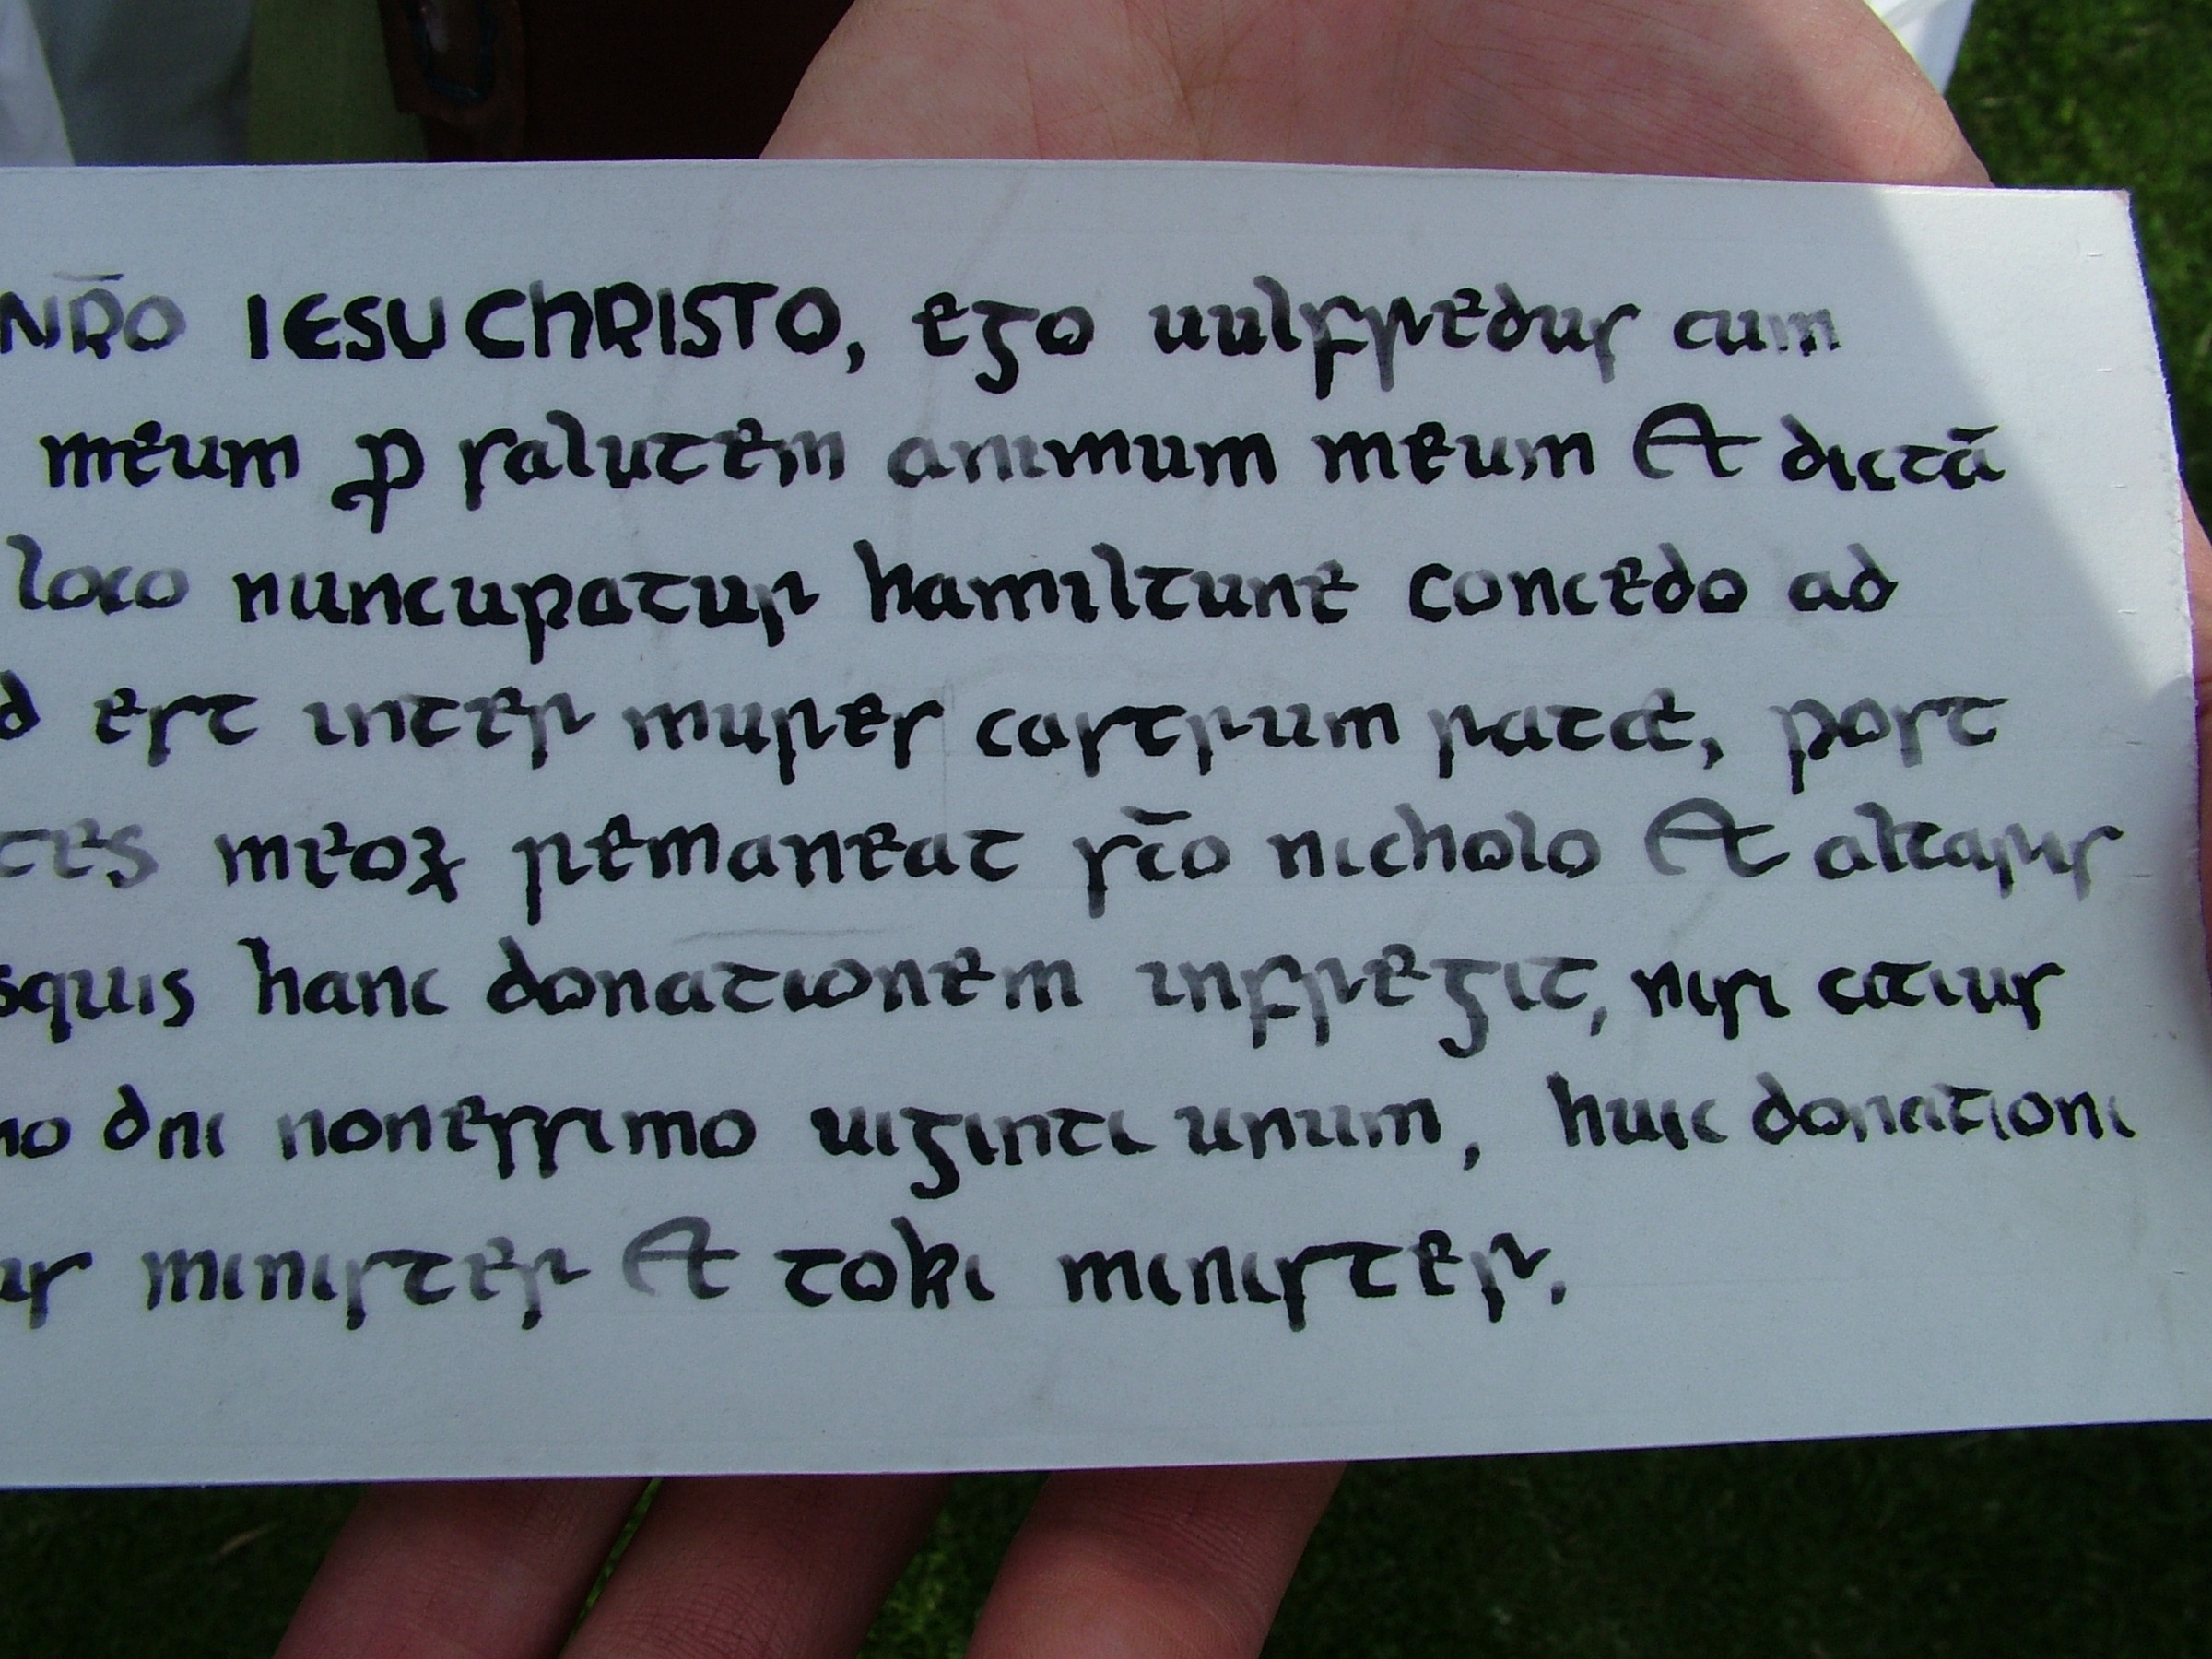 NR̄O IESU CHRISTO, ego uulfredus cum
meum ꝓ salutem animum meum Et dictā
loco nuncupatur hamiltune concedo ad
d est inter mures castrum ratæ, post
tes meoꝝ remaneat sc̄o nicholo Et altarus
squis hanc donationem infregit, nisi citius
no dni nonessimo uiginti unum, huic donationi
us minister Et toki minister.